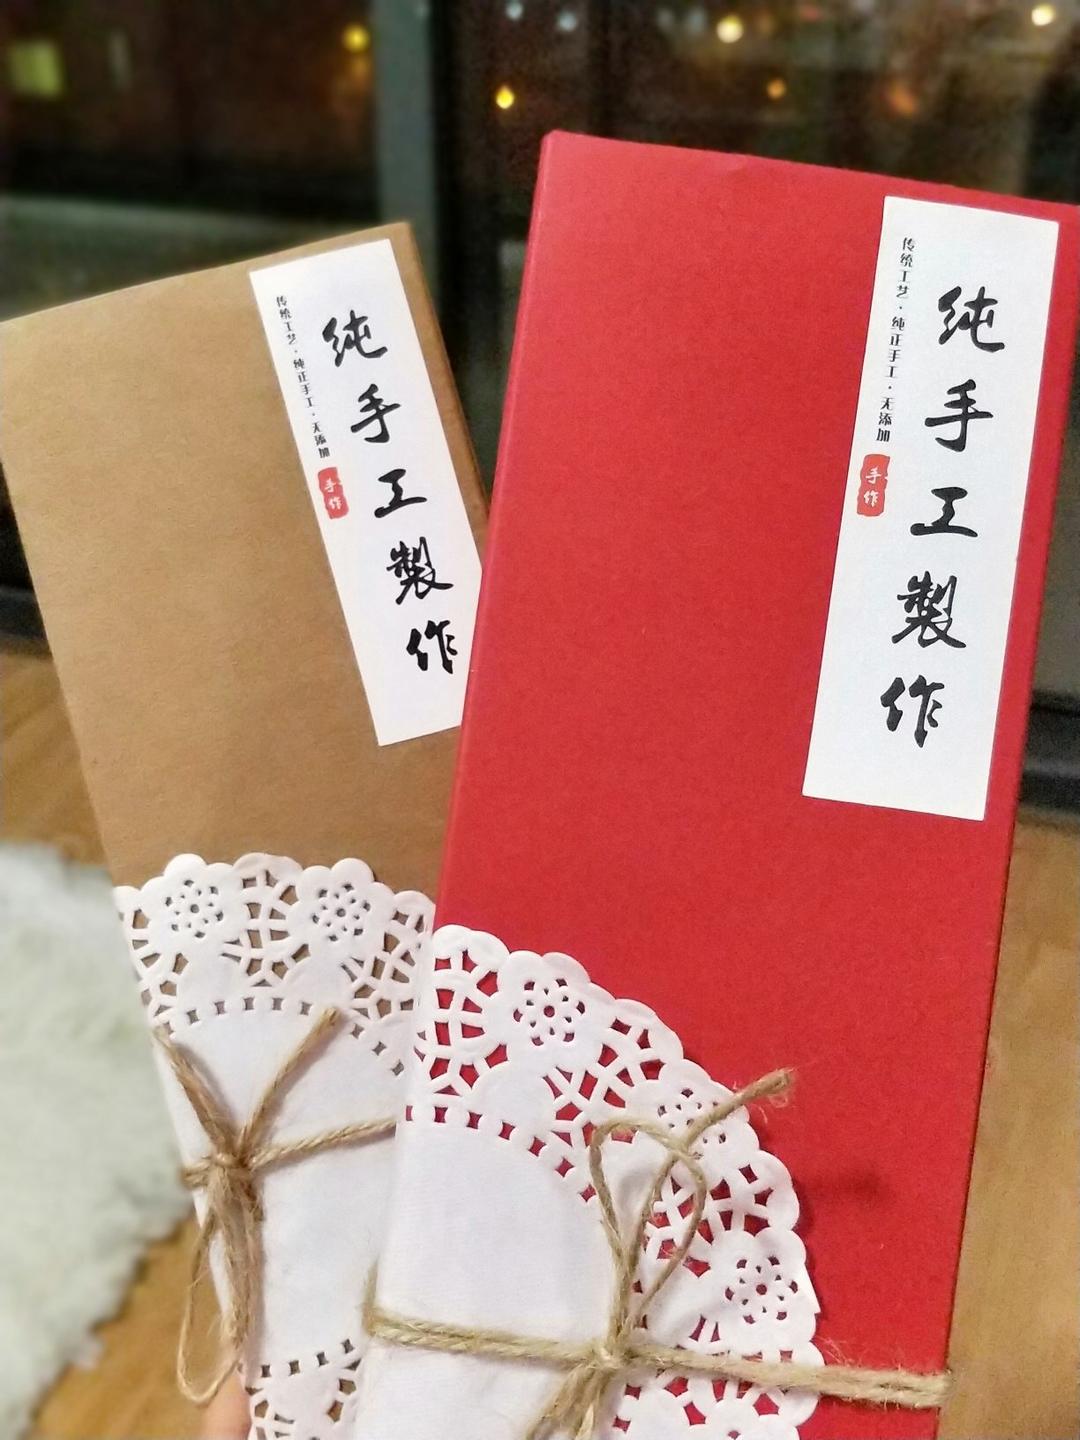 纯手工製作
传统工艺·纯正手工·无添加
手作
纯手工製作
传统工艺·纯正手工·无添加
手作